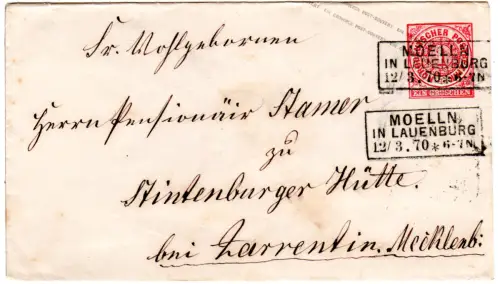 Sr. Wohlgebornen
Herrn Pensionäir Stamer
zu
Stintenburger Hütte.
bei Zarrentin. Mecklenb:
EIN GROSCHEN
MOELLN
IN LAUENBURG
12/3.70 * 6-7N
MOELLN
IN LAUENBURG
12/3.70 * 6-7N